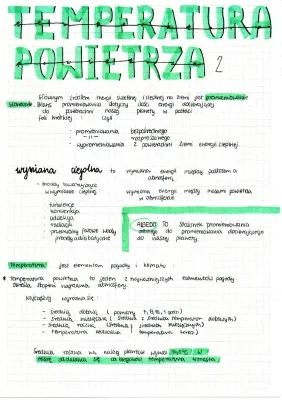 TEMPERATURA
POWIETRZA 2
Głównym źródłem energii świetlnej i cieplnej na Ziemi jest promieniowanie
słoneczne. Bilans promieniowania dotyczy ilość energii docierającej
do powierzchni naszej planety w postaci
fali krótkiej i czyli
- promieniowania bezpośredniego
- " - rozproszonego
- wypromieniowania z powierzchni Ziemi energii cieplnej
wymiana cieplna to wymiana energii między podłożem a
atmosferą
- procesy towarzyszące
w wymianie cieplnej wymiana energii między masami powietrza
w atmosferze
- turbulencje
- konwekcja
- adwekcja
- radiacja
- przemiany fazowe wody
- procesy adiabatyczne
ALBEDO TO stosunek promieniowania
odbitego do promieniowania docierającego
do naszej planety.
Temperatura jest elementem pogody i klimatu
* Temperatura powietrza to jeden z najważniejszych elementów pogody
określa stopień nagrzania atmosfery.
Najczęściej wyraża się:
- średnią dobową ( pomiary 7, 13, 19, 1 godz.)
- średnią miesięczną ( średnia z średnich temperatur dobowych)
- średnią roczną (średnia z średnich miesięcznych)
- temperatura aktualna (temperatura teraz)
Średnia roczna na naszej planecie wynosi